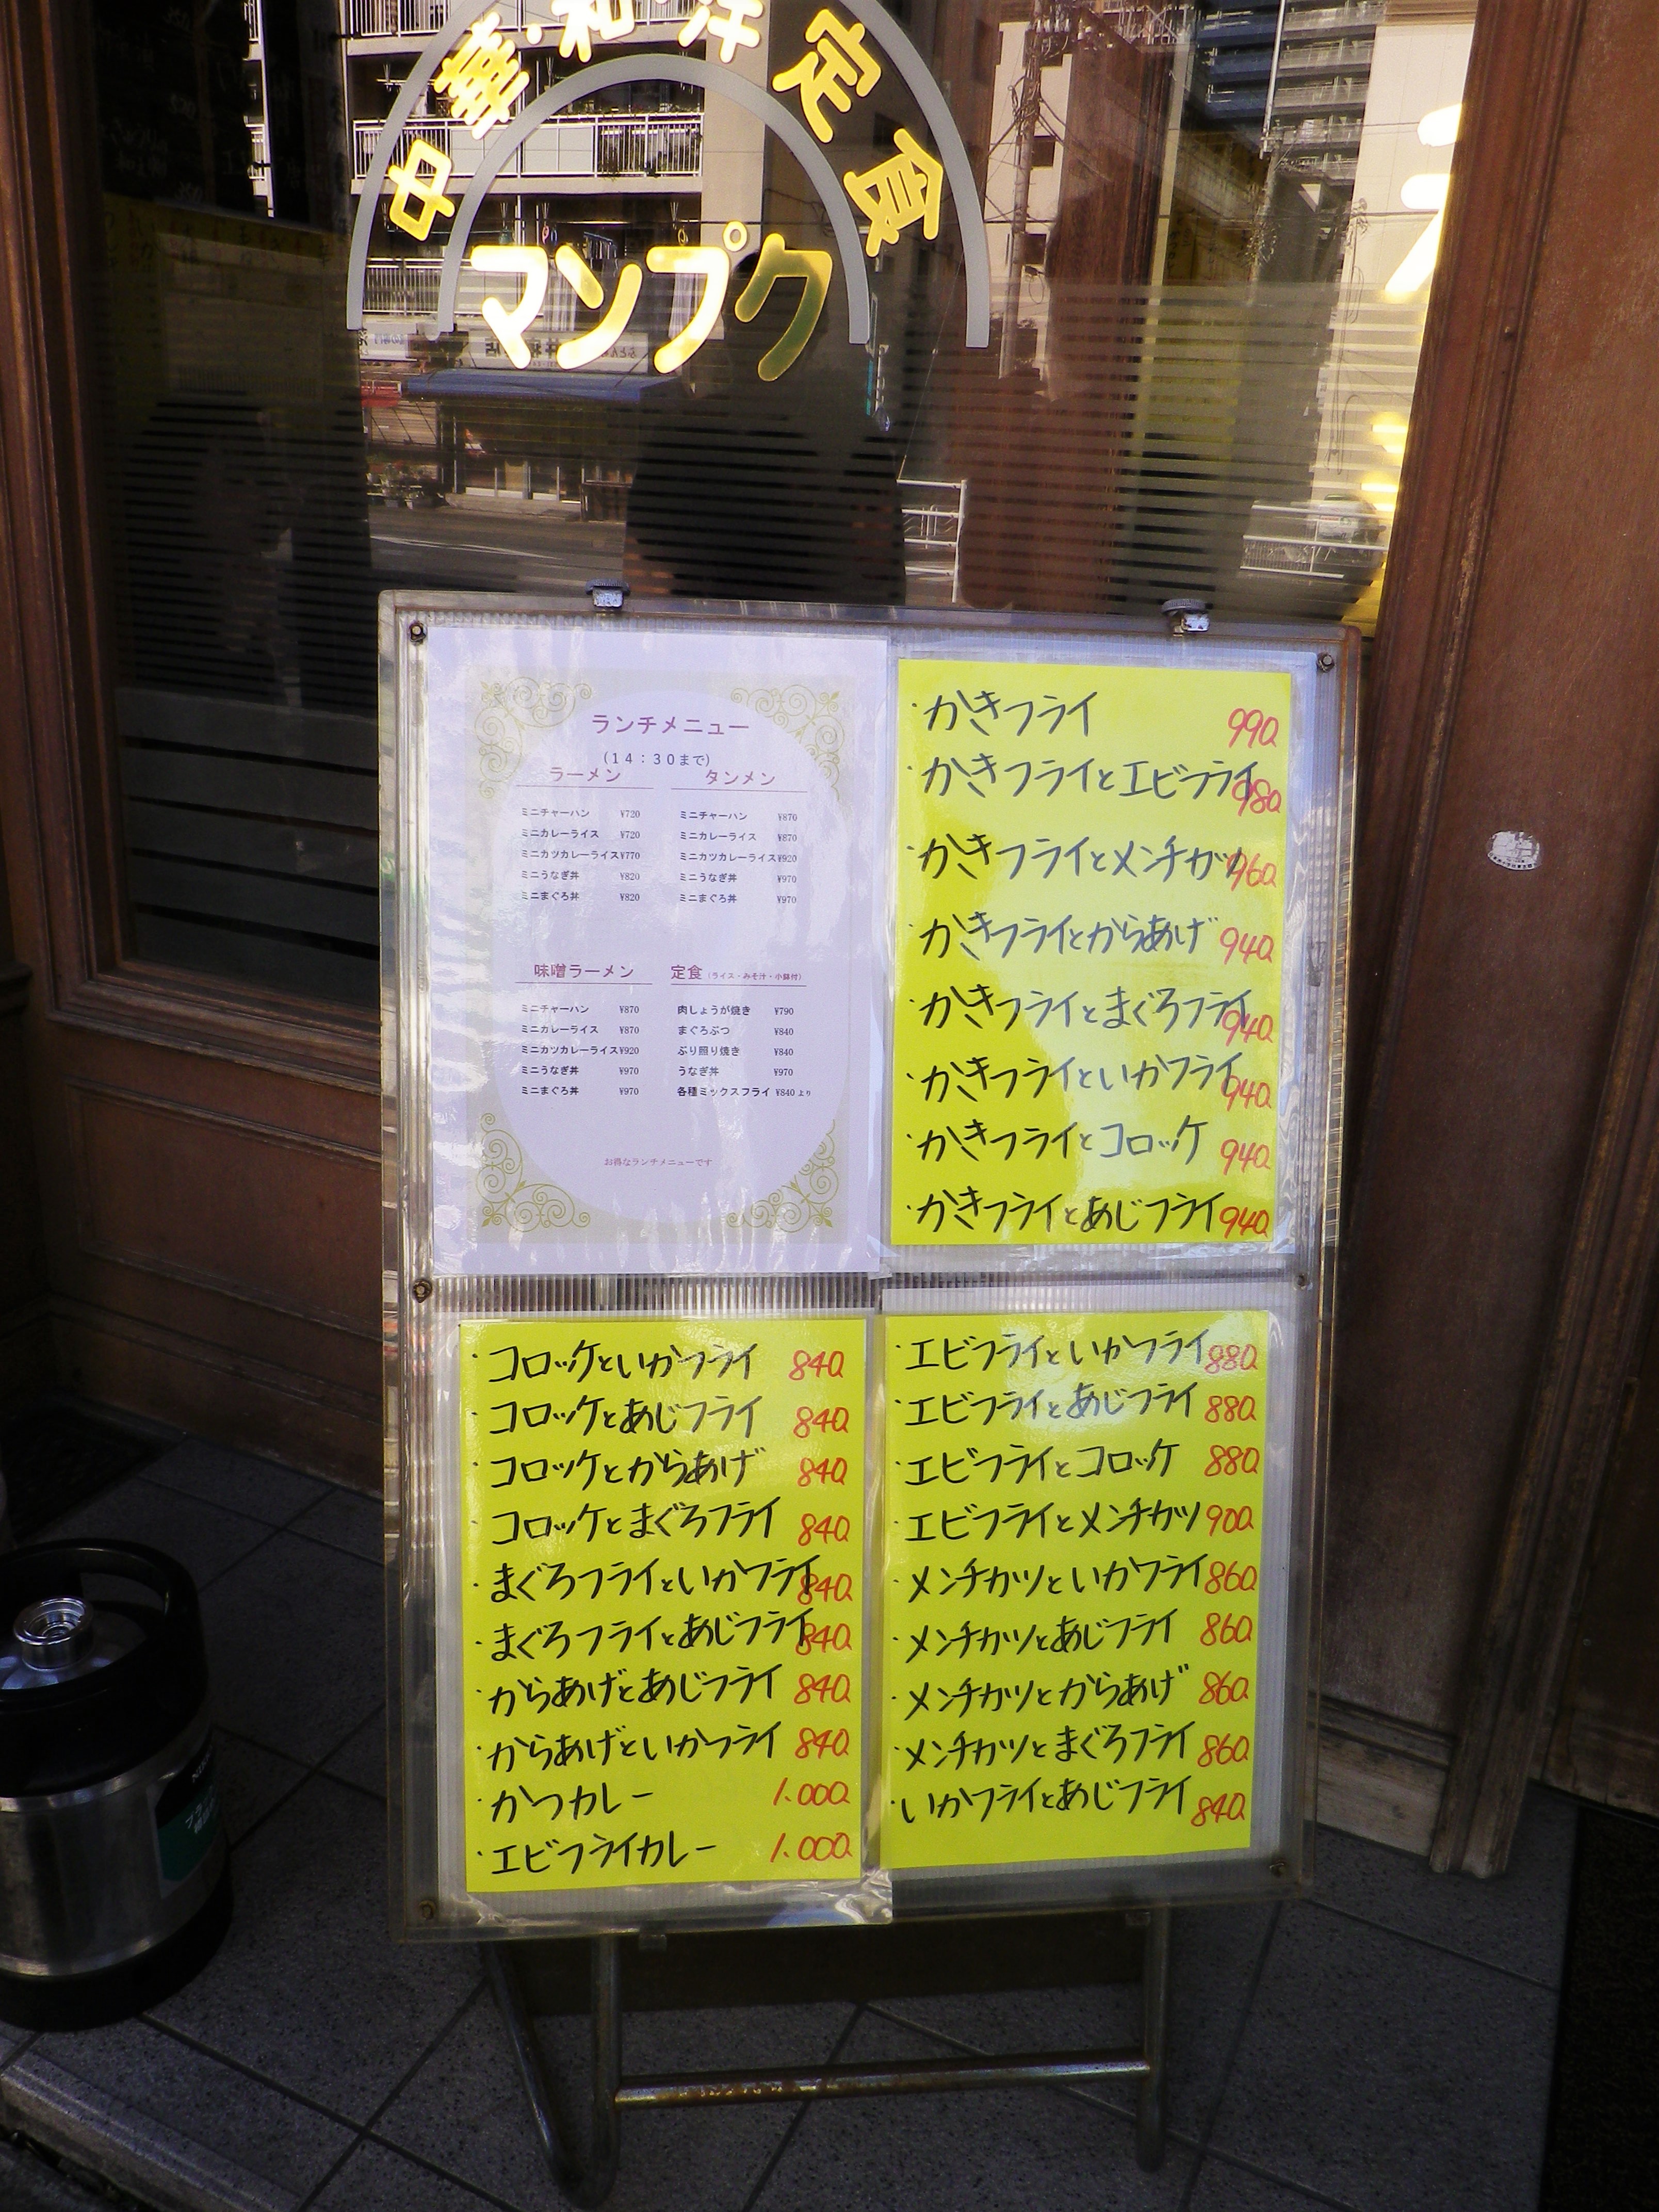 中華・和・洋定食
マンプク
ランチメニュー
(14:30まで)
ラーメン
ミニチャーハン ¥720
ミニカレーライス ¥720
ミニカツカレーライス¥770
ミニうなぎ丼 ¥820
ミニまぐろ丼 ¥820
タンメン
ミニチャーハン ¥870
ミニカレーライス ¥870
ミニカツカレーライス¥920
ミニうなぎ丼 ¥970
ミニまぐろ丼 ¥970
味噌ラーメン
ミニチャーハン ¥870
ミニカレーライス ¥870
ミニカツカレーライス¥920
ミニうなぎ丼 ¥970
ミニまぐろ丼 ¥970
定食(ライス・みそ汁・小鉢付)
肉しょうが焼き ¥790
まぐろぶつ ¥840
ぶり照り焼き ¥840
うなぎ丼 ¥970
各種ミックスフライ ¥840より
お得なランチメニューです
・かきフライ 990
・かきフライとエビフライ 980
・かきフライとメンチカツ 960
・かきフライとからあげ 940
・かきフライとまぐろフライ 940
・かきフライといかフライ 940
・かきフライとコロッケ 940
・かきフライとあじフライ 940
・コロッケといかフライ 840
・コロッケとあじフライ 840
・コロッケとからあげ 840
・コロッケとまぐろフライ 840
・まぐろフライといかフライ 840
・まぐろフライとあじフライ 840
・からあげとあじフライ 840
・からあげといかフライ 840
・かつカレー 1.000
・エビフライカレー 1.000
・エビフライといかフライ 880
・エビフライとあじフライ 880
・エビフライとコロッケ 880
・エビフライとメンチカツ 900
・メンチカツといかフライ 860
・メンチカツとあじフライ 860
・メンチカツとからあげ 860
・メンチカツとまぐろフライ 860
・いかフライとあじフライ 840